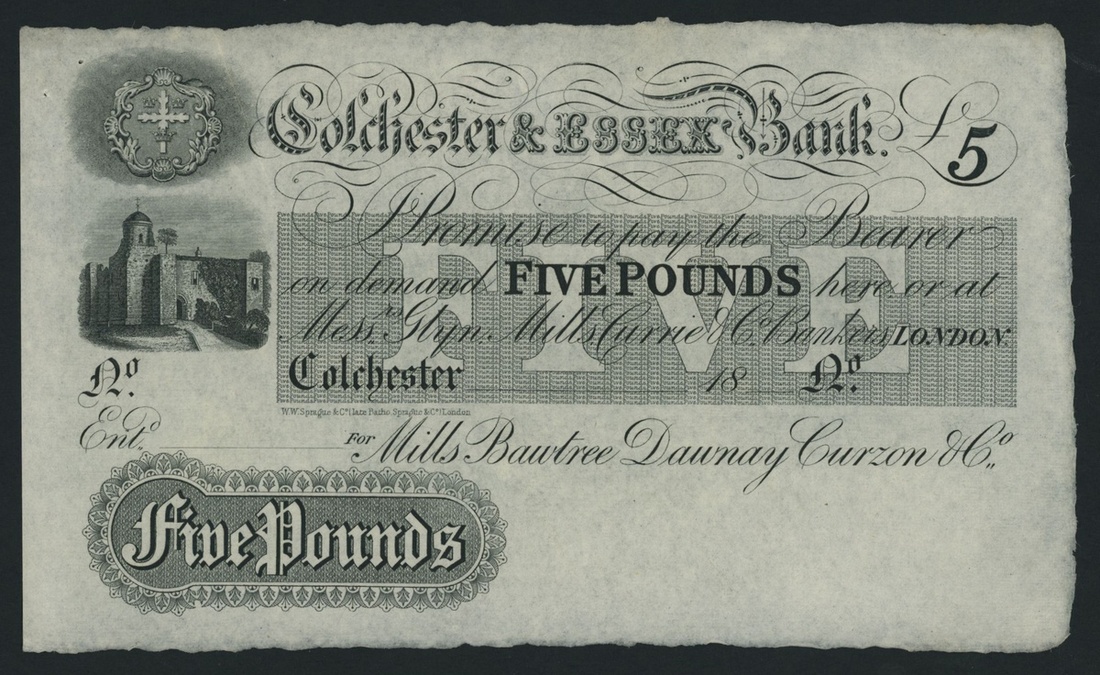 Colchester & ESSEX Bank. £5
I Promise to pay the Bearer
on demand FIVE POUNDS here or at
Mess.rs Glyn, Mills, Currie & Co. Bankers, LONDON.
FIVE
Colchester 18 No.
No.
W.W. Sprague & Co. (late Patho. Sprague & Co.) London
Entd. For Mills Bawtree Dawnay Curzon & Co.
Five Pounds